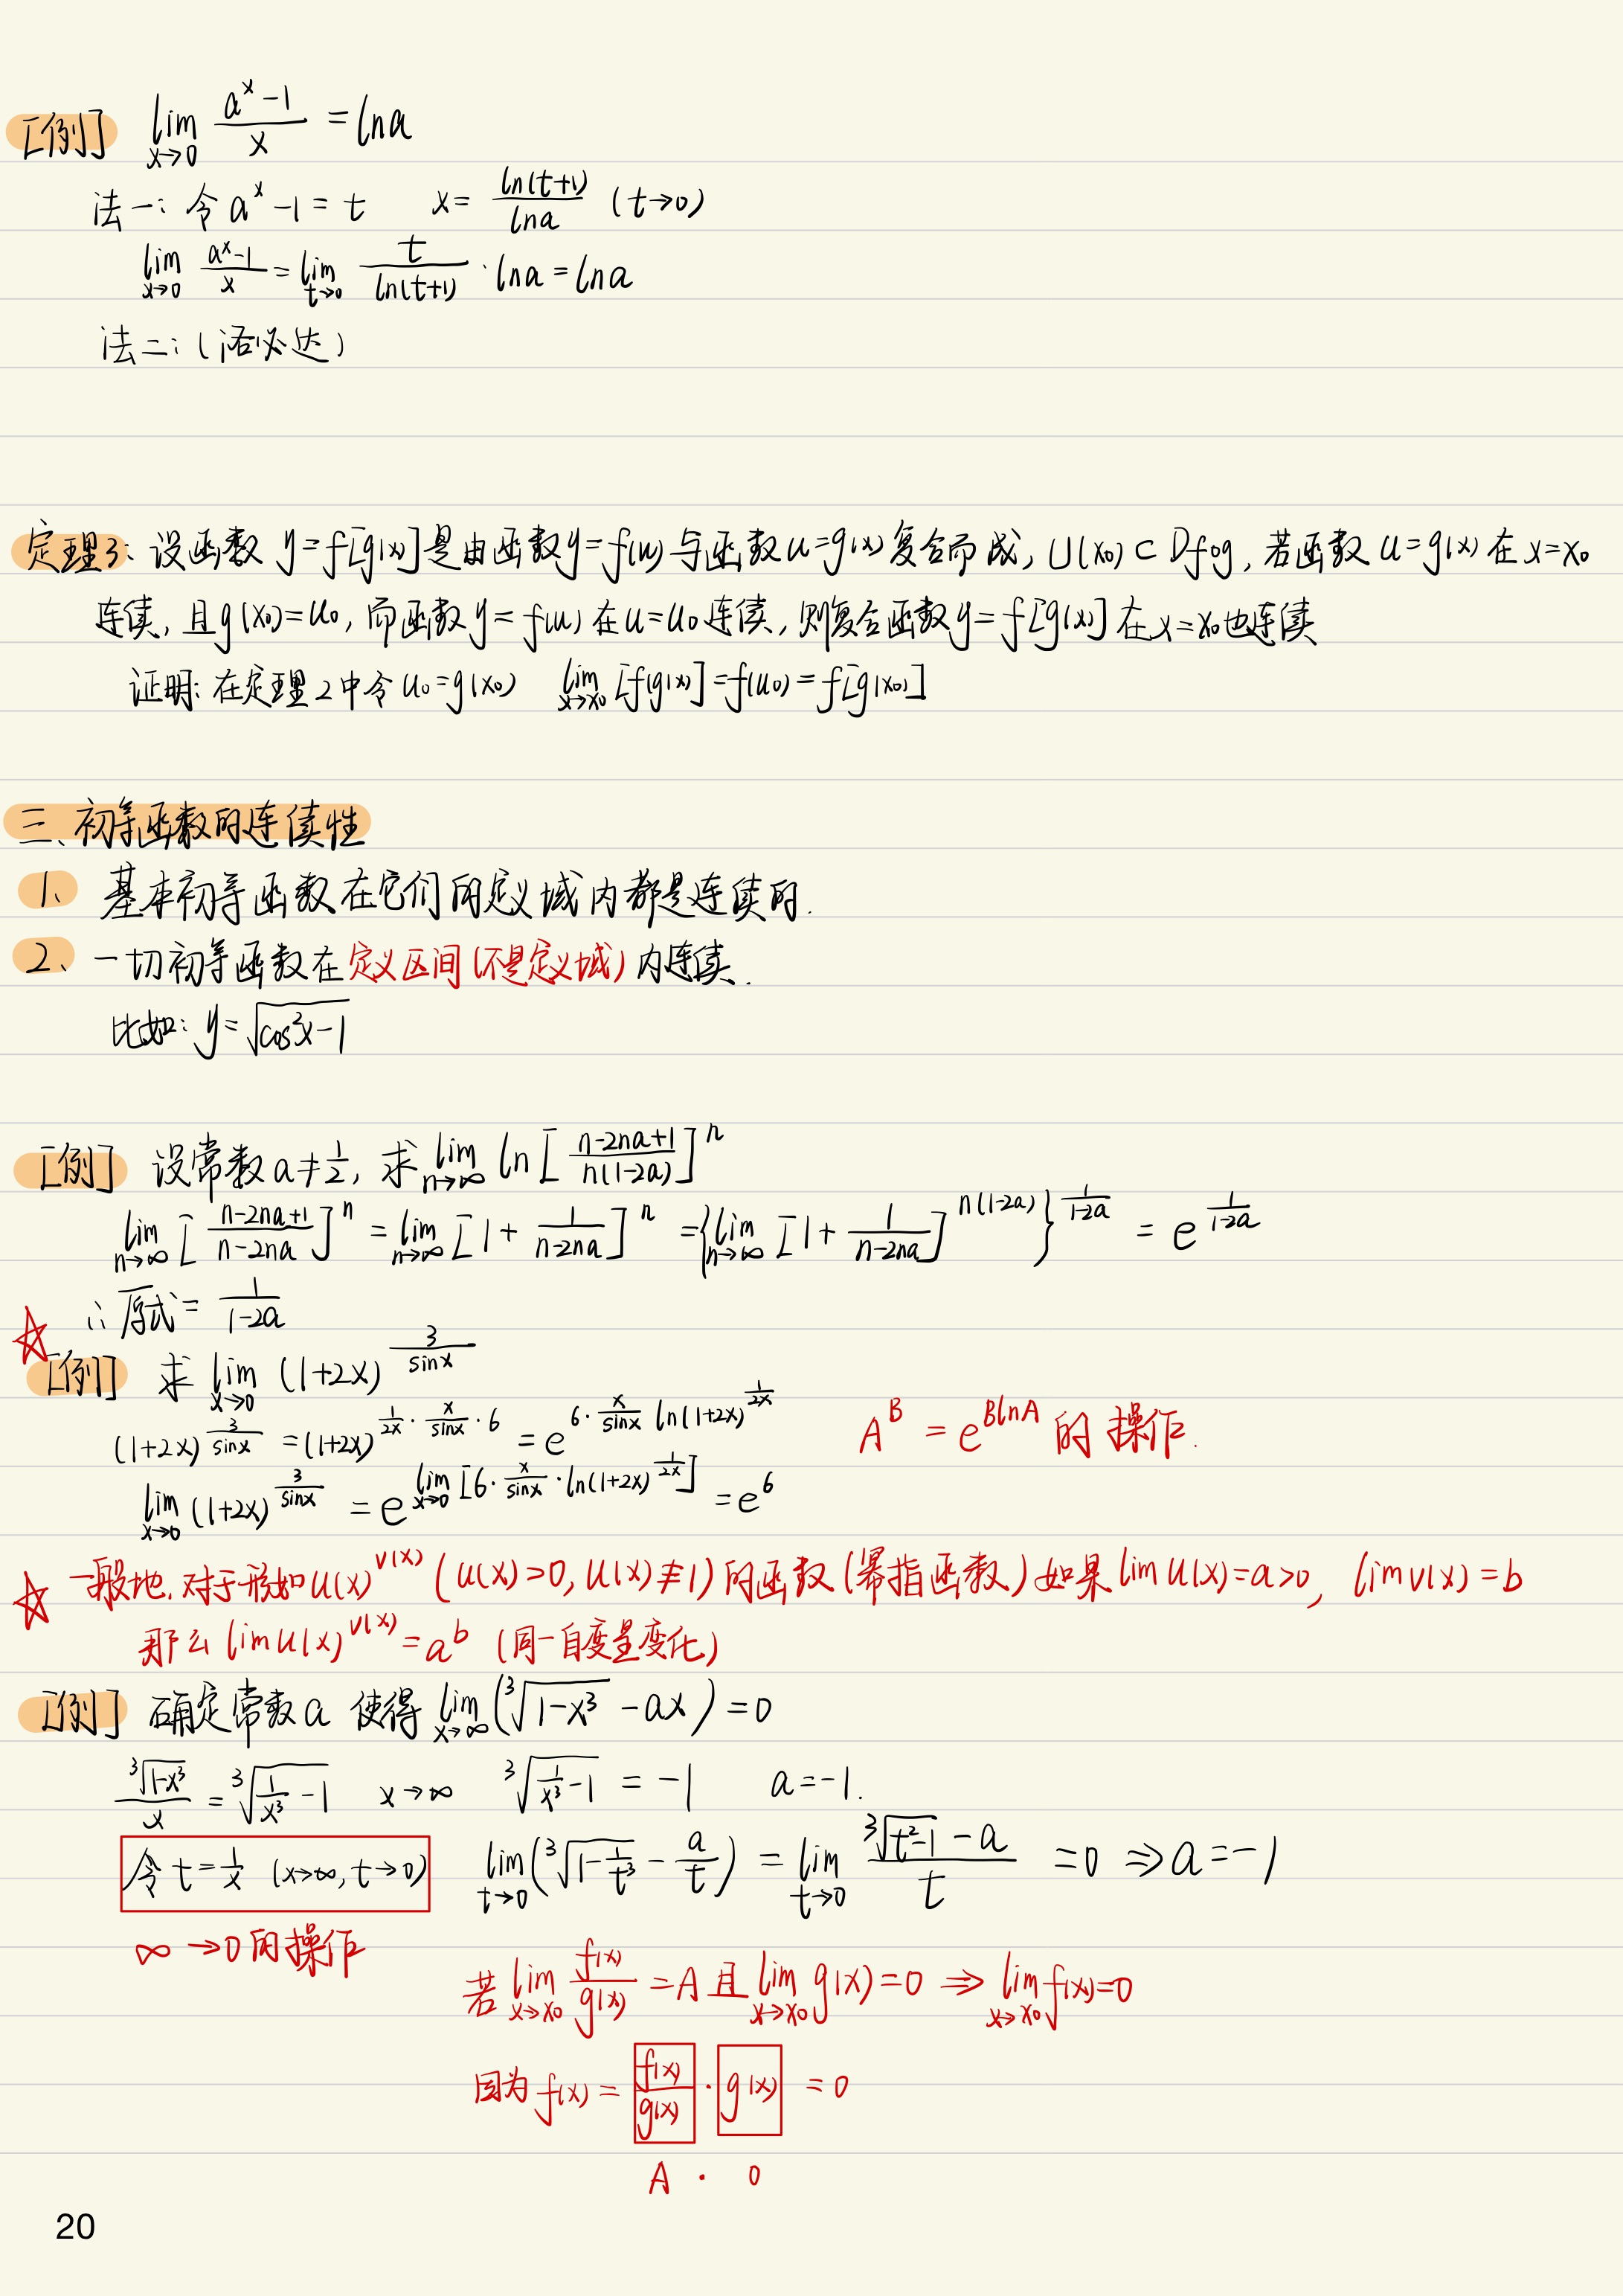 [例] lim_{x→0} (a^x-1)/x = lna
法一: 令a^x-1=t x= ln(t+1)/lna (t→0)
lim_{x→0} (a^x-1)/x = lim_{t→0} t/ln(t+1) · lna = lna
法二: (洛必达)
定理3: 设函数 y=f[g(x)]是由函数y=f(u)与函数u=g(x)复合而成, U(x₀)⊂Dfog, 若函数 u=g(x) 在 x=x₀
连续, 且g(x₀)=u₀, 而函数y=f(u)在u=u₀连续, 则复合函数y=f[g(x)]在x=x₀也连续
证明: 在定理2中令u₀=g(x₀) lim_{x→x₀} [f(g(x)]=f(u₀)=f[g(x₀)]
三、初等函数的连续性
1、 基本初等函数在它们的定义域内都是连续的.
2、 一切初等函数在定义区间(不是定义域)内连续.
比如: y=√(cos²x-1)
[例] 设常数a≠1/2, 求 lim_{n→∞} ln[(n-2na+1)/(n(1-2a))]^n
lim_{n→∞} [(n-2na+1)/(n-2na)]^n = lim_{n→∞} [1+ 1/(n-2na)]^n = {lim_{n→∞} [1+ 1/(n-2na)]^{n(1-2a)}}^{1/(1-2a)} = e^{1/(1-2a)}
∴原式= 1/(1-2a)
☆ [例] 求 lim_{x→0} (1+2x)^{3/sinx}
(1+2x)^{3/sinx} = (1+2x)^{1/2x · x/sinx · 6} = e^{6· x/sinx ln(1+2x)^{1/2x}} A^B = e^{BlnA} 的操作.
lim_{x→0} (1+2x)^{3/sinx} = e^{lim_{x→0} [6· x/sinx ·ln(1+2x)^{1/2x}]} = e^6
☆ 一般地, 对于形如u(x)^{v(x)} (u(x)>0, u(x)≢1) 的函数(幂指函数) 如果lim u(x)=a>0, lim v(x)=b
那么 lim u(x)^{v(x)} = a^b (同一自变量变化)
[例] 确定常数a 使得 lim_{x→∞} (∛(1-x³) -ax) =0
∛(1-x³)/x = ∛(1/x³ -1) x→∞ ∛(1/x³ -1) = -1 a=-1.
令 t=1/x (x→∞, t→0) lim_{t→0} (∛(1-1/t³) - a/t) = lim_{t→0} (∛(t²-1) -a)/t =0 ⇒a=-1
∞→0的操作
若 lim_{x→x₀} f(x)/g(x) =A 且 lim_{x→x₀} g(x)=0 ⇒ lim_{x→x₀} f(x)=0
因为 f(x)= f(x)/g(x) · g(x) =0
A · 0
20